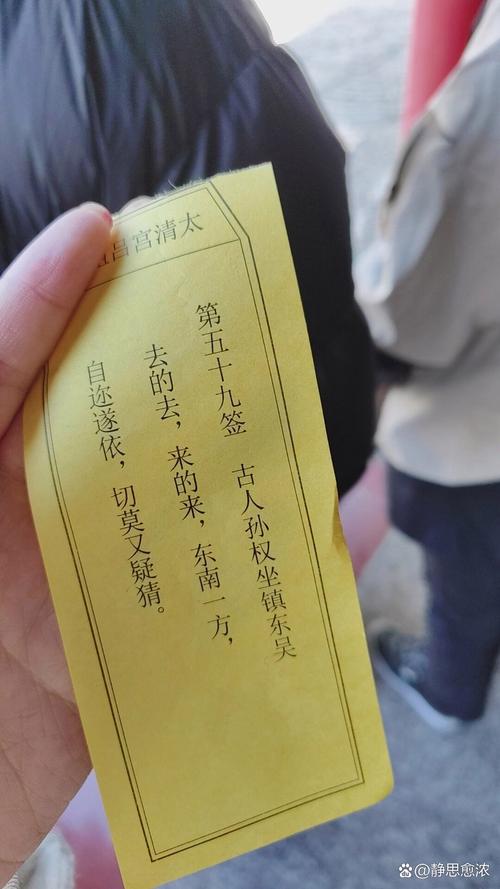 太清宫吕
第五十九签 古人孙权坐镇东吴
去的去，来的来，东南一方，
自迩遂依，切莫又疑猜。
静思愈浓